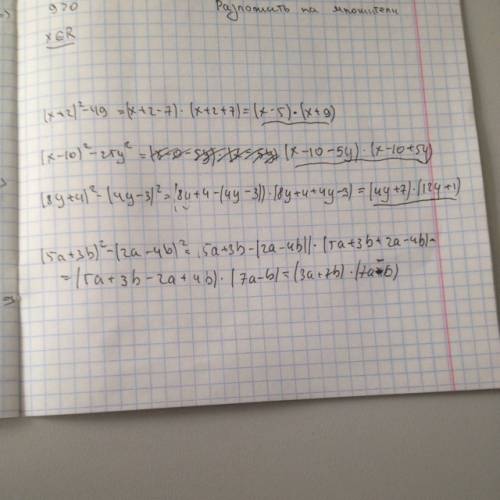 9>0 Разложить на множители
x∈R
(x+2)²-49=(x+2-7)·(x+2+7)=(x-5)·(x+9)
(x-10)²-25y²=(x-10-5y)·(x-10+5y)
(8y+4)²-(4y-3)²=(8y+4-(4y-3))·(8y+4+4y-3)=(4y+7)·(12y+1)
(5a+3b)²-(2a-4b)²=(5a+3b-(2a-4b))·(5a+3b+2a-4b)=
=(5a+3b-2a+4b)·(7a-b)=(3a+7b)·(7a-b)